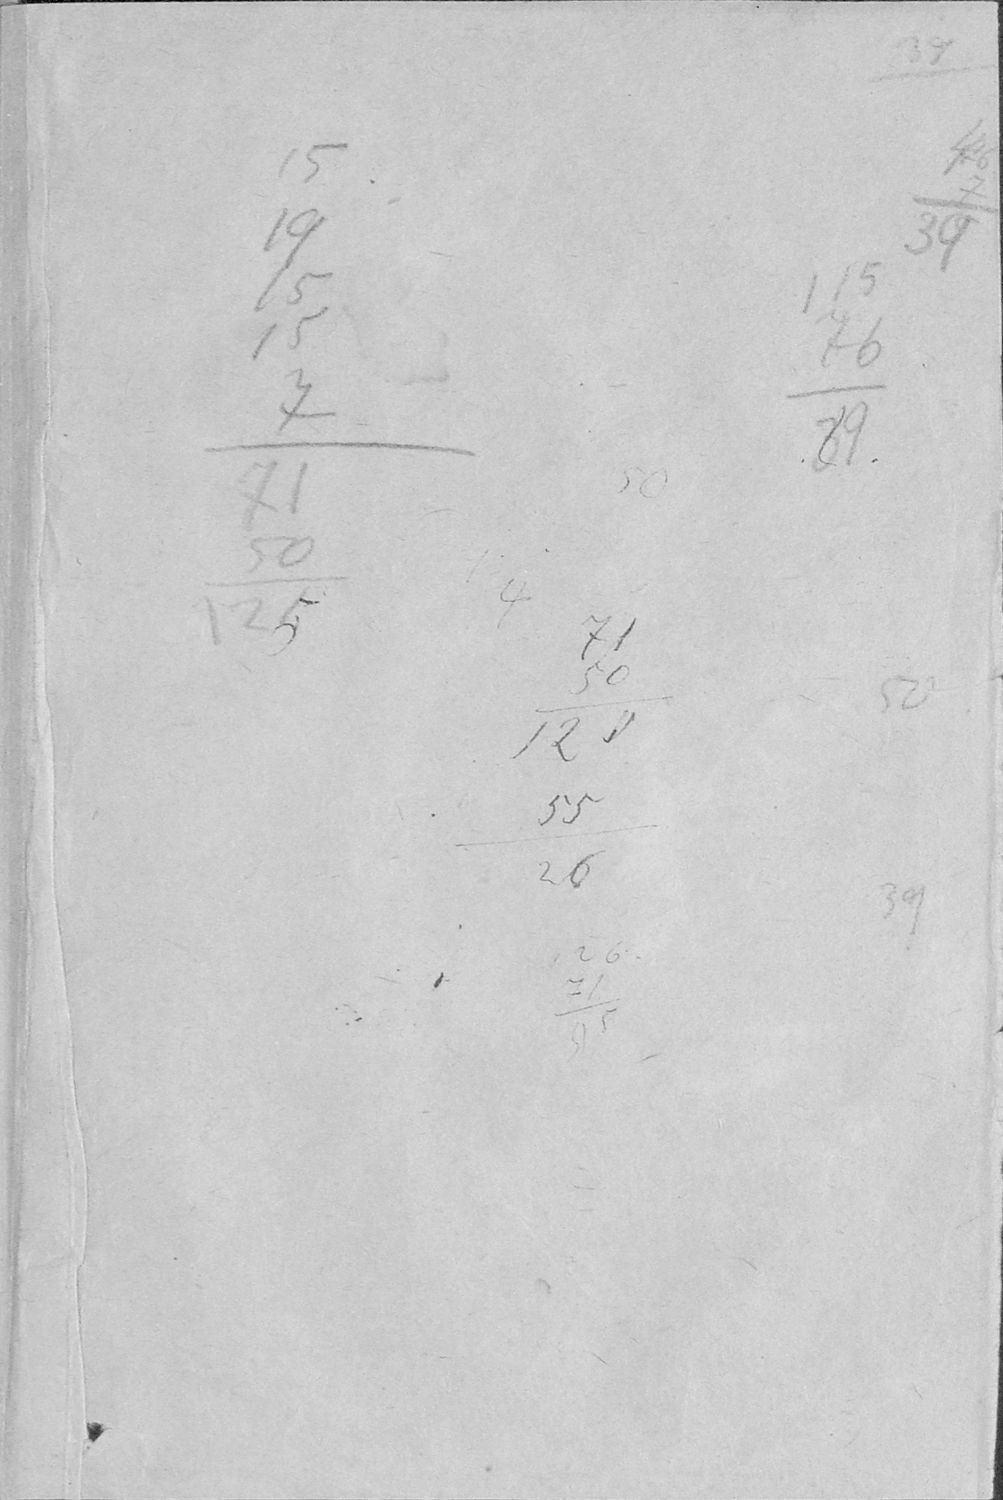 39
15
19
15
15
7
71
50
125
7
39
115
76
39.
50
4
71
50
121
55
26
50
39
126.
71
95